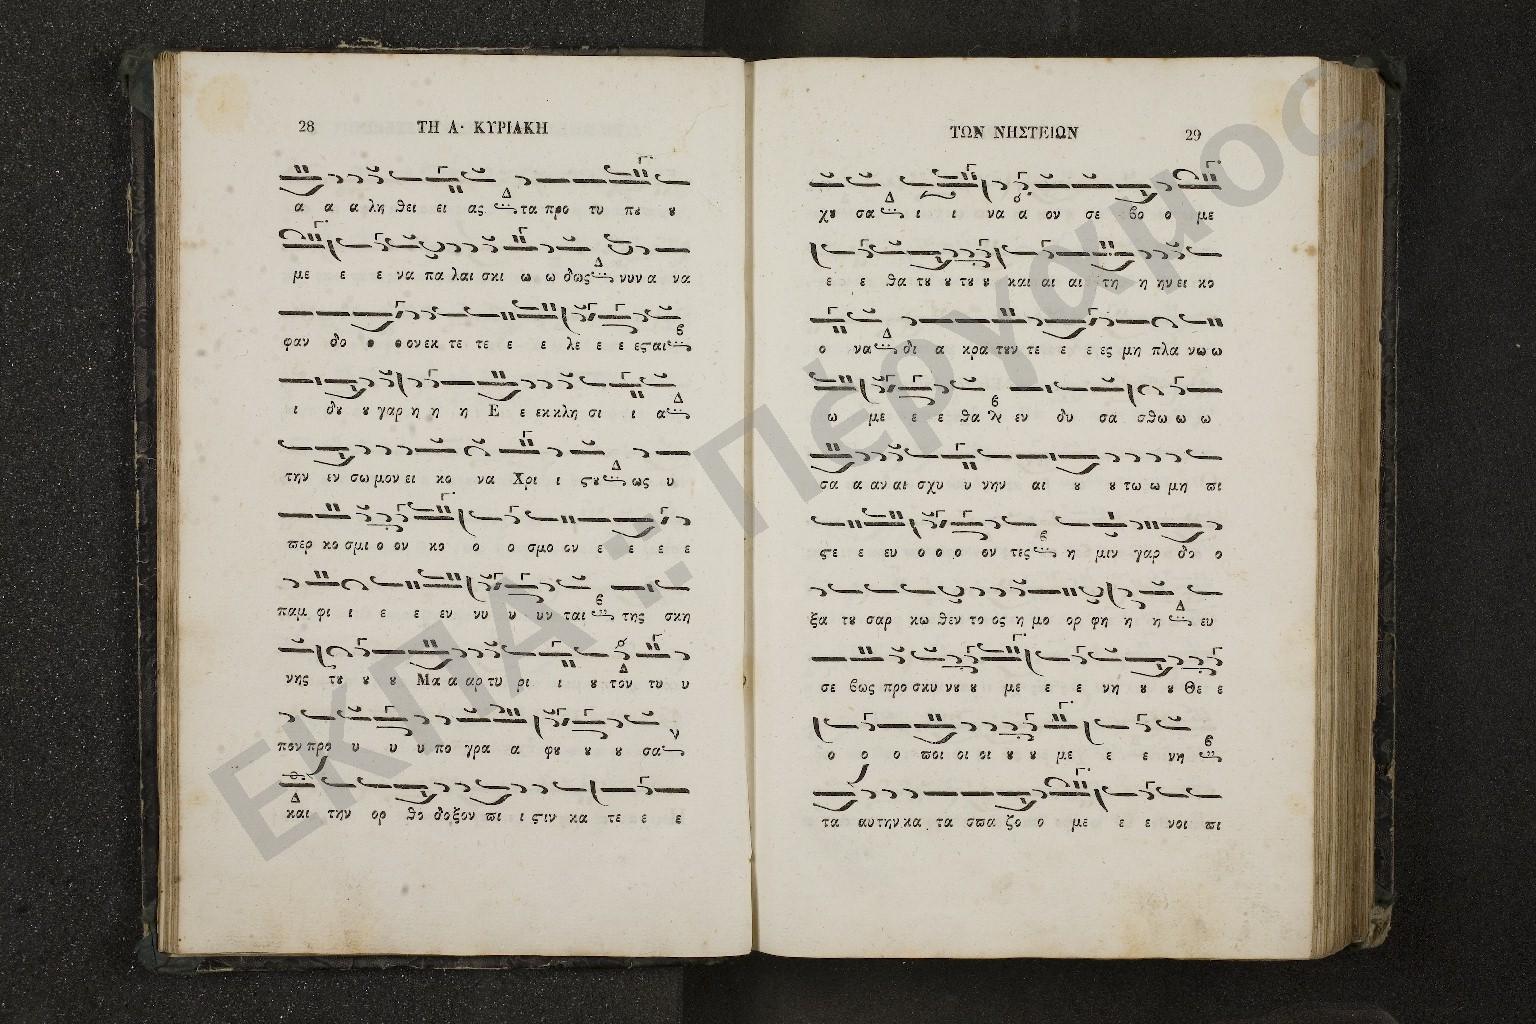 28 ΤΗ Α· ΚΥΡΙΑΚΗ
α α α λη θει ει ας τα προ τυ πȣ ȣ
με ε ε να πα λαι σκι ω ω δως νυν α να
φαν δο ο ο ον εκ τε τε τε ε ε λε ε ε ε ϛαι
ι δȣ ȣ γαρ η η η Ε ε εκ κλη σι ι α
την εν σω μον ει κο να Χρι ι ϛȣ ως υ
περ κο σμι ο ον κο ο ο σμο ον ε ε ε ε
παμ φι ι ε ε ε εν νυ υ υ υν ται της σκη
νης τȣ ȣ ȣ Μα α αρ τυ ρι ι ȣ τον τυ υ
πον προ υ υ υ πο γρα α φȣ ȣ ȣ ȣ σα
και την ορ θο δοξον πι ι ϛιν κα τε ε ε
ΤΩΝ ΝΗΣΤΕΙΩΝ 29
χȣ σα ι ι να α ον σε βο ο με
ε ε θα τȣ ȣ τȣ ȣ και αι αι τη η ην ει κο
ο να δι α κρα τȣν τε ε ε ες μη πλα νω ω
ω με ε ε θα εν δυ σα σθω ω ω
σα α αν αι σχυ υ νην αι ȣ ȣ τω ω μη πι
ϛε ε ευ ο ο ο ον τες η μιν γαρ δο ο
ξα τȣ σαρ κω θεν το ος η μο ορ φη η η ευ
σε βως προ σκυ νȣ ȣ με ε ε νη ȣ ȣ Θε ε
ο ο ο ποι οι οι ȣ ȣ με ε ε νη
τα αυ την κα τα σπα ζο ο με ε ε νοι πι
ΕΚΠΑ :: Πέργαμος